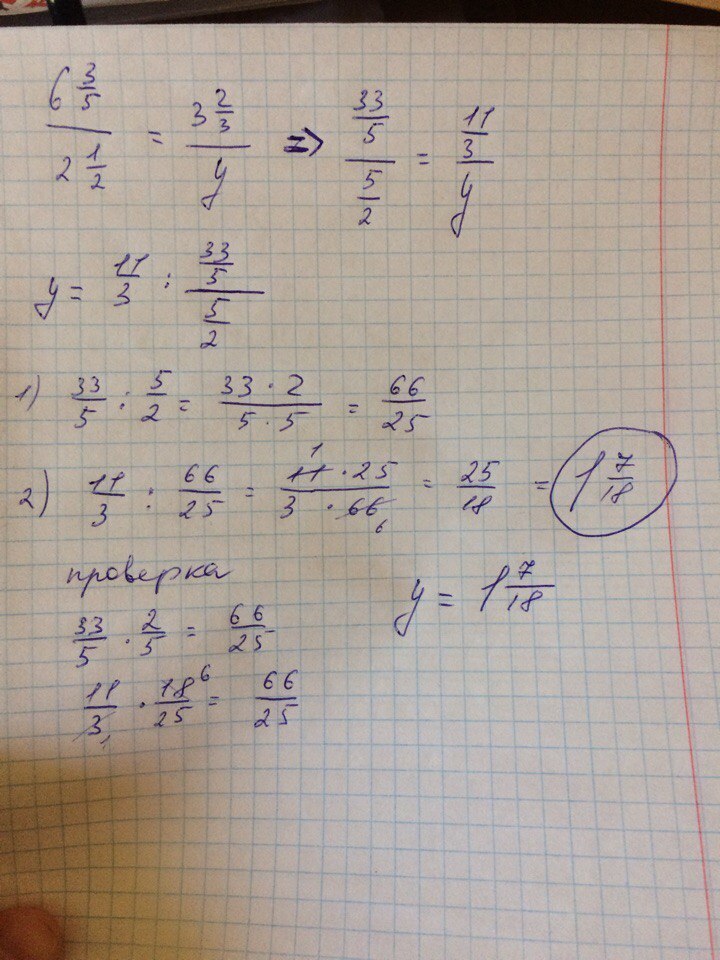 6 3/5 / 2 1/2 = 3 2/3 / y => 33/5 / 5/2 = 11/3 / y
y = 11/3 : 33/5 / 5/2
1) 33/5 : 5/2 = 33·2 / 5·5 = 66/25
2) 11/3 : 66/25 = 11 1 ·25 / 3·66 6 = 25/18 = 1 7/18
проверка
y = 1 7/18
33/5 · 2/5 = 66/25
11/3 1 · 18 6 /25 = 66/25